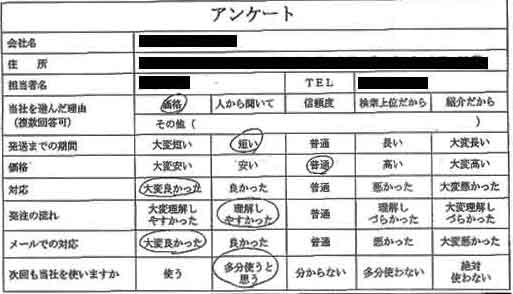 アンケート
会社名
住 所
担当者名 TEL
当社を選んだ理由 (複数回答可) 価格 人から聞いて 信頼度 検索上位だから 紹介だから
その他 ( )
発送までの期間 大変短い 短い 普通 長い 大変長い
価格 大変安い 安い 普通 高い 大変高い
対応 大変良かった 良かった 普通 悪かった 大変悪かった
発注の流れ 大変理解しやすかった 理解しやすかった 普通 理解しづらかった 大変理解しづらかった
メールでの対応 大変良かった 良かった 普通 悪かった 大変悪かった
次回も当社を使いますか 使う 多分使うと思う 分からない 多分使わない 絶対使わない